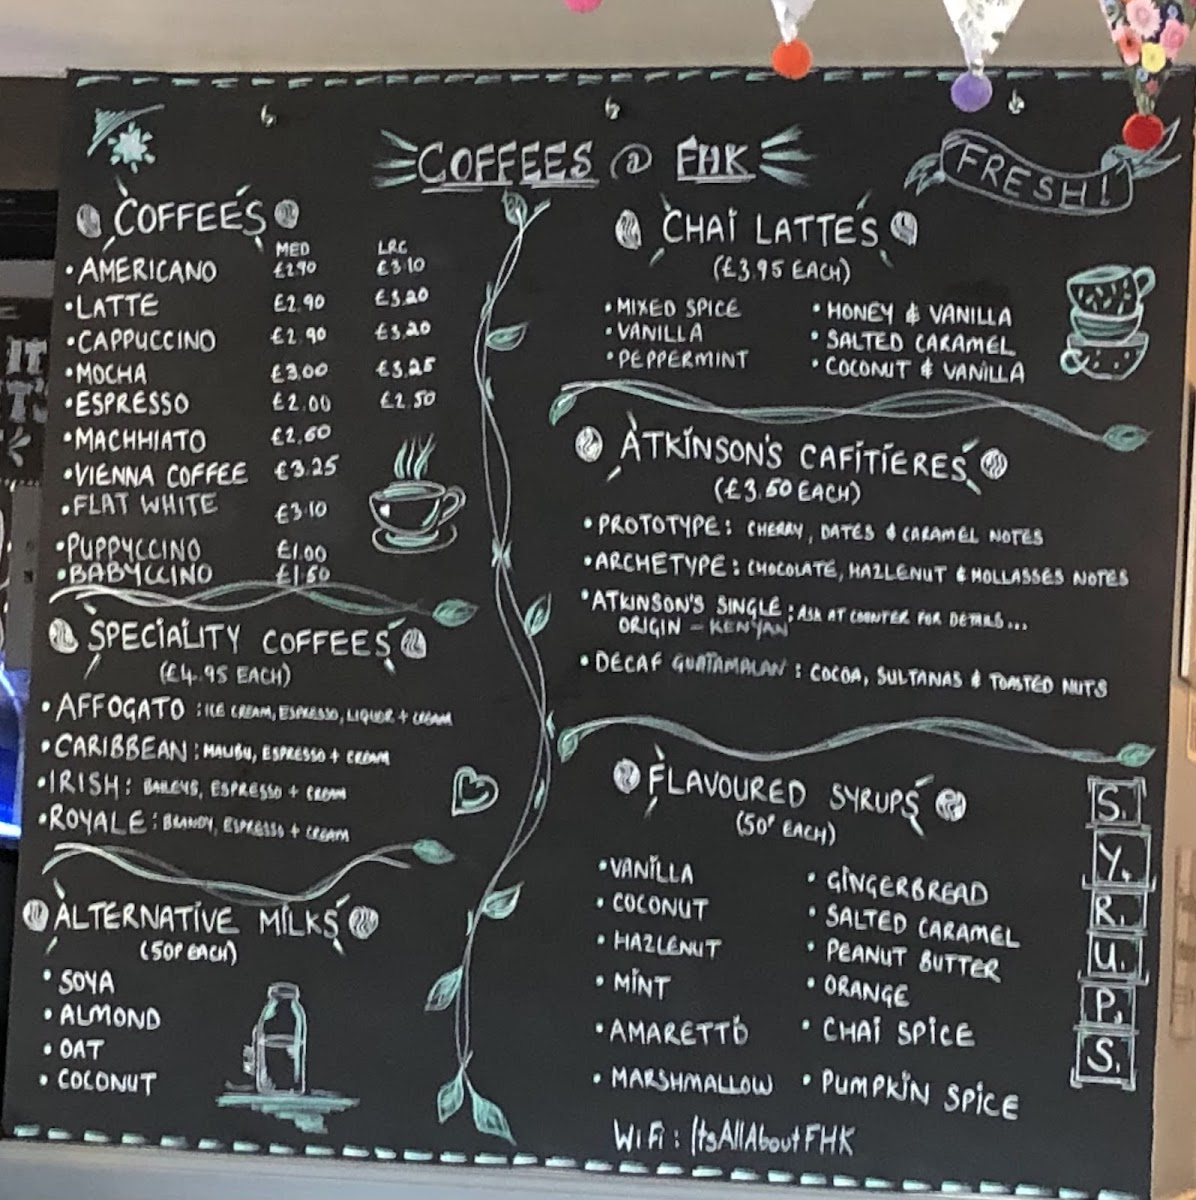 COFFEES @ FHK
FRESH!
COFFEES
MED LRG
•AMERICANO £2.90 £3.10
•LATTE £2.90 £3.20
•CAPPUCCINO £2.90 £3.20
•MOCHA £3.00 £3.25
•ESPRESSO £2.00 £2.50
•MACHHIATO £2.60
•VIENNA COFFEE £3.25
•FLAT WHITE £3.10
•PUPPYCCINO £1.00
•BABYCCINO £1.50
SPECIALITY COFFEES
(£4.95 EACH)
•AFFOGATO : ICE CREAM, ESPRESSO, LIQUOR + CREAM
•CARIBBEAN : MALIBU, ESPRESSO + CREAM
•IRISH : BAILEYS, ESPRESSO + CREAM
•ROYALE : BRANDY, ESPRESSO + CREAM
ALTERNATIVE MILKS
(50P EACH)
• SOYA
• ALMOND
• OAT
• COCONUT
CHAI LATTES
(£3.95 EACH)
•MIXED SPICE •HONEY & VANILLA
•VANILLA •SALTED CARAMEL
•PEPPERMINT •COCONUT & VANILLA
ATKINSON'S CAFITIERES
(£3.50 EACH)
•PROTOTYPE : CHERRY, DATES & CARAMEL NOTES
•ARCHETYPE : CHOCOLATE, HAZLENUT & MOLLASSES NOTES
•ATKINSON'S SINGLE : ASK AT COUNTER FOR DETAILS...
ORIGIN – KENYAN
•DECAF GUATAMALAN : COCOA, SULTANAS & TOASTED NUTS
FLAVOURED SYRUPS
(50P EACH)
•VANILLA • GINGERBREAD
• COCONUT • SALTED CARAMEL
• HAZLENUT • PEANUT BUTTER
• MINT • ORANGE
•AMARETTO • CHAI SPICE
• MARSHMALLOW • PUMPKIN SPICE
S.
Y.
R.
U.
P.
S.
WiFi : ItsAllAboutFHK